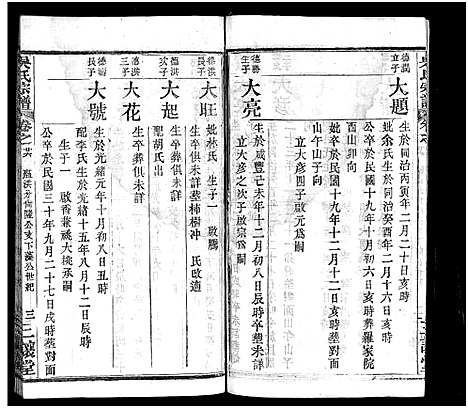 吳氏宗譜
德潤立子 大題
生於同治丙寅年二月二十日亥時
妣余氏生於同治癸酉年二月十六日亥時
公卒於民國十九年十月初六日亥時葬羅家院
酉山卯向
妣卒於民國十九年十二月十二日亥時葬對面
山午山子向
立大彥四子啟元爲嗣
德勝生子 大亮
生於咸豐己未年十二月初八日辰時卒塟未詳
立大彥之次子啟宗爲嗣
德洪長子 大旺
妣林氏 生子一 啟騰
生卒俱未詳塟柿樹冲 氏改適
德洪次子 大起
生卒葬俱未詳
配胡氏出
德洪三子 大花
生卒葬俱未詳
德洪四子 大號
生於光緒元年十月初八日丑時
配李氏生於光緒十五年八月十二日辰時
生子一 啟香兼祧大桃承嗣
公卒於民國三十年九月二十七日戌時塟對面
吳氏宗譜 卷之廿六
三二 讓堂